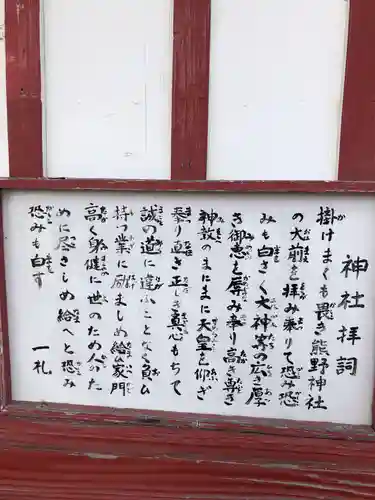 神社拝詞
掛けまくも畏き熊野神社
の大前を拝み奉りて恐み恐
みも白さく大神等の広き厚
き御恵を辱み奉り高き尊き
神教のまにまに天皇を仰ぎ
奉り直き正しき真心もちて
誠の道に違ふことなく負ひ
持つ業に励ましめ給ひ家門
高く身健に世のため人のた
めに尽さしめ給へと恐み
恐みも白す
一礼